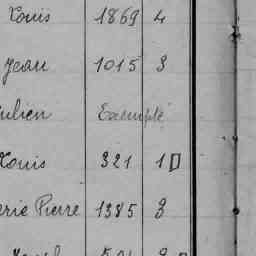 Louis 1869 4
Jean 1015 3
ulien Exempté
Louis 321 1
erie Pierre 1385 3